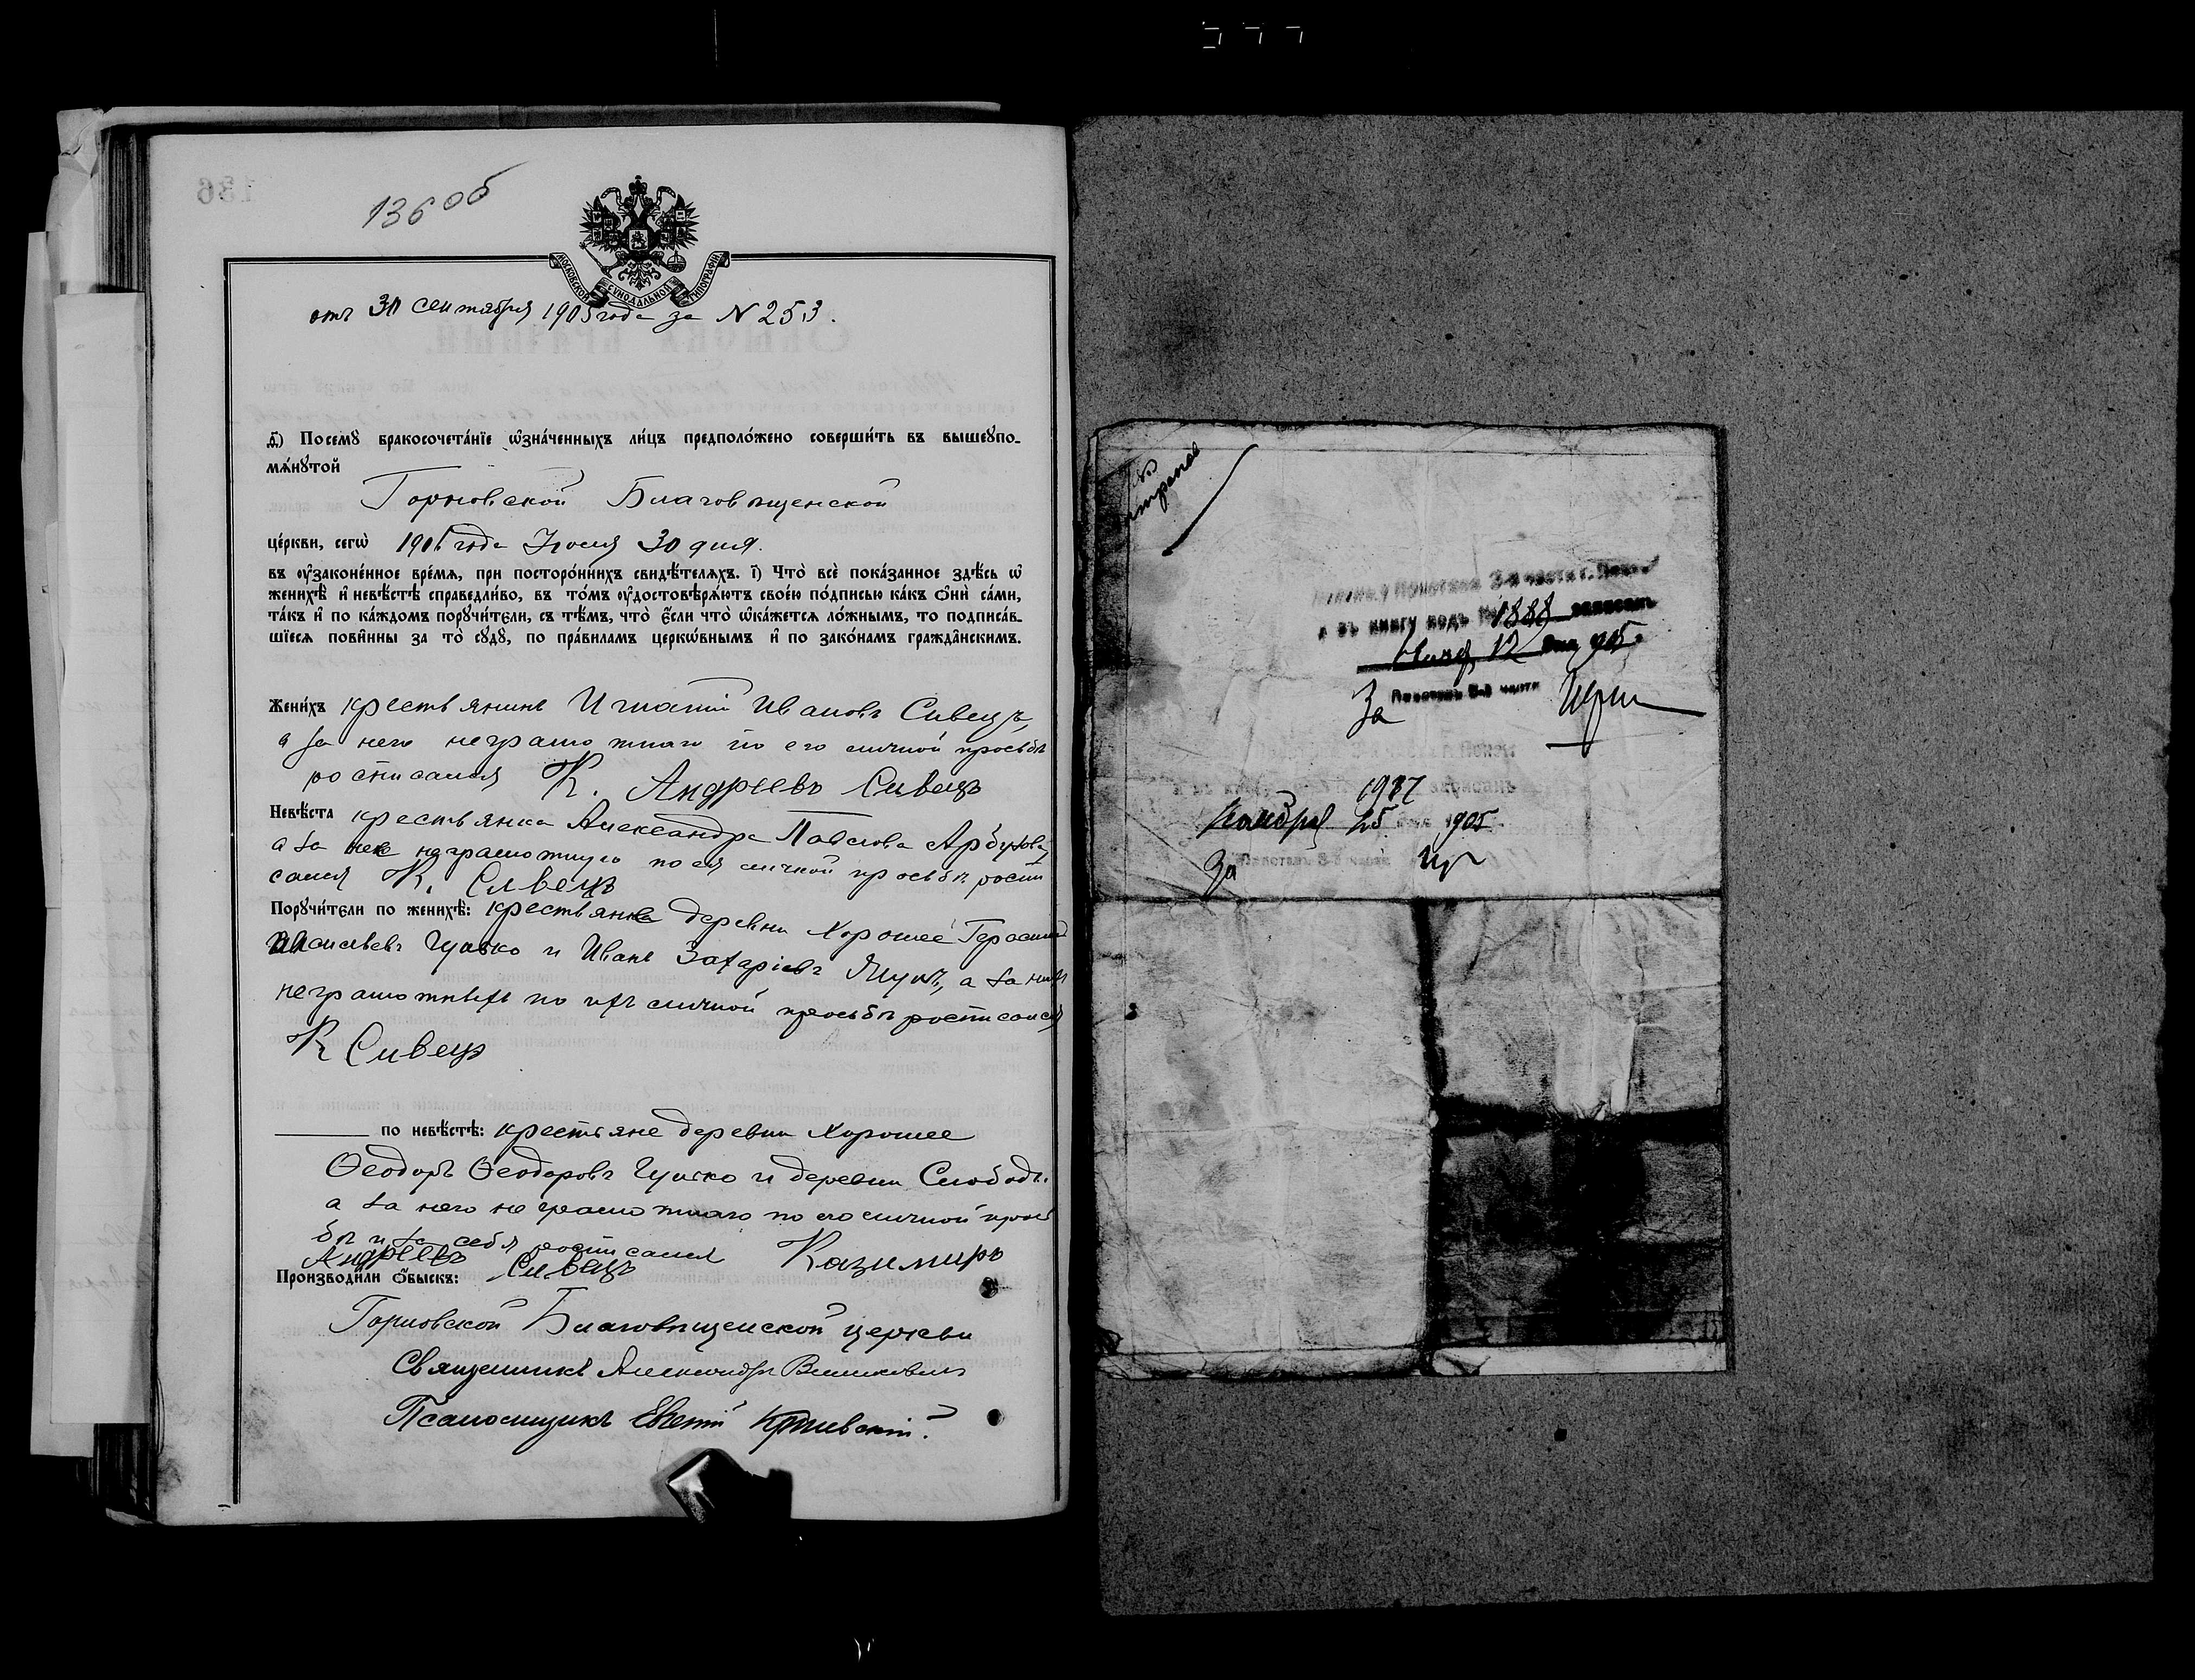 136 об
МОСКОВСКОЙ СѴНОДАЛЬНОЙ ТИПОГРАФІИ
отъ 30 сентября 1905 года за N 253.
д҃) Посемꙋ бракосочета́нїе ѡ҆зна́ченныхъ ли́цъ предполо́жено соверши́ть въ вышеꙋпо-
мѧ́нꙋтой
Горновской Благовѣщенской
це́ркви, сегѡ̀ 1906 года Іюля 30 дня.
въ ᲂу҆законе́нное вре́мѧ, при посторо́ннихъ свидѣ́телѧхъ. і҃) Что̀ всѐ пока́занное здѣ́сь ѡ҆
женихѣ̀ и҆ невѣ́стѣ справедли́во, въ то́мъ ᲂу҆достовѣрѧ́ютъ свое́ю по́дписью ка́къ ѻ҆нѝ са́ми,
та́къ и҆ по ка́ждомъ порꙋчи́тели, съ тѣ́мъ, что̀ є҆́сли что̀ ѡ҆ка́жетсѧ ло́жнымъ, то подписа́в-
шїесѧ пови́нны за то̀ сꙋдꙋ̀, по пра́виламъ церкѡ́внымъ и҆ по зако́намъ гражда́нскимъ.
Жени́хъ крестьянинъ Игнатій Ивановъ Сивецъ,
а за него неграмотнаго по его личной просьбѣ
росписался К. Андреевъ Сивецъ
Невѣ́ста крестьянка Александра Павлова
а за нее неграмотную по ея личной просьбѣ роспи
сался К. Сивецъ
Порꙋчи́тели по женихѣ̀: крестьяне деревни Хорошее Герасимъ
Гулько и Иванъ Захаріевъ а за нихъ
неграмотныхъ по ихъ личной просьбѣ росписался
К Сивецъ
по невѣ́стѣ: крестьяне деревни Хорошее
Ѳеодоръ Ѳеодоровъ Гулько и деревни Слобода
а за него неграмотнаго по его личной прось
бѣ и за себя росписался Казимиръ
Андреевъ Сивецъ
Производи́ли ѻ҆́быскъ:
Горновской Благовѣщенской церкви
Священникъ Александръ
Псаломщикъ
и въ книгу подъ № 1888 записанъ
12 дня 1905
За Приставъ 3-й части
1937 записанъ
Ноября 25 дня 1905
За Приставъ 3-й части